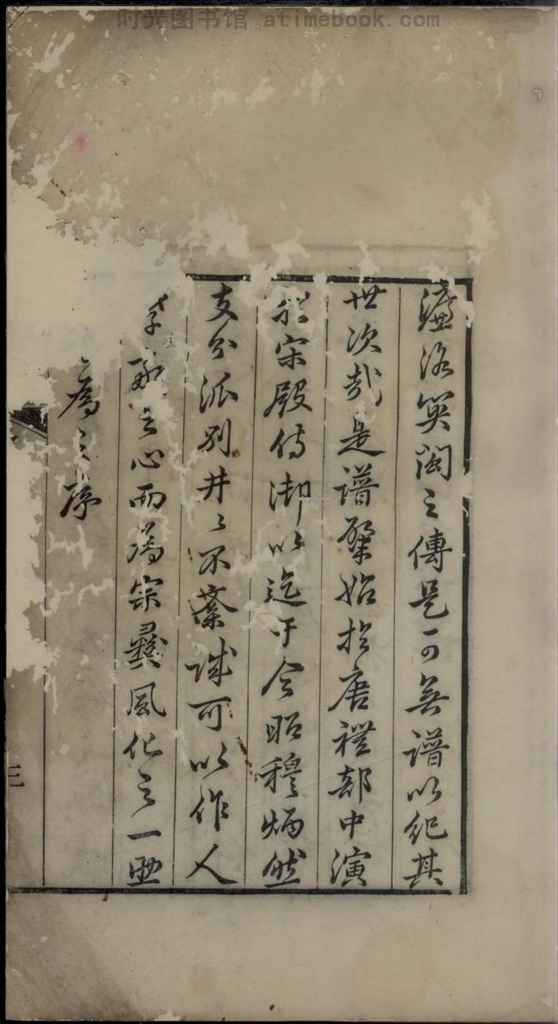 时光图书馆 atimebook.com
濂洛英閣之傳是可無譜以紀其
世次哉是譜肇始於唐禮部中演
於宋殿侍御以迄于今昭穆炳然
支分派別井〻不紊誠可以作人
孝敬之心而為宗彝風化之一
為之序
三